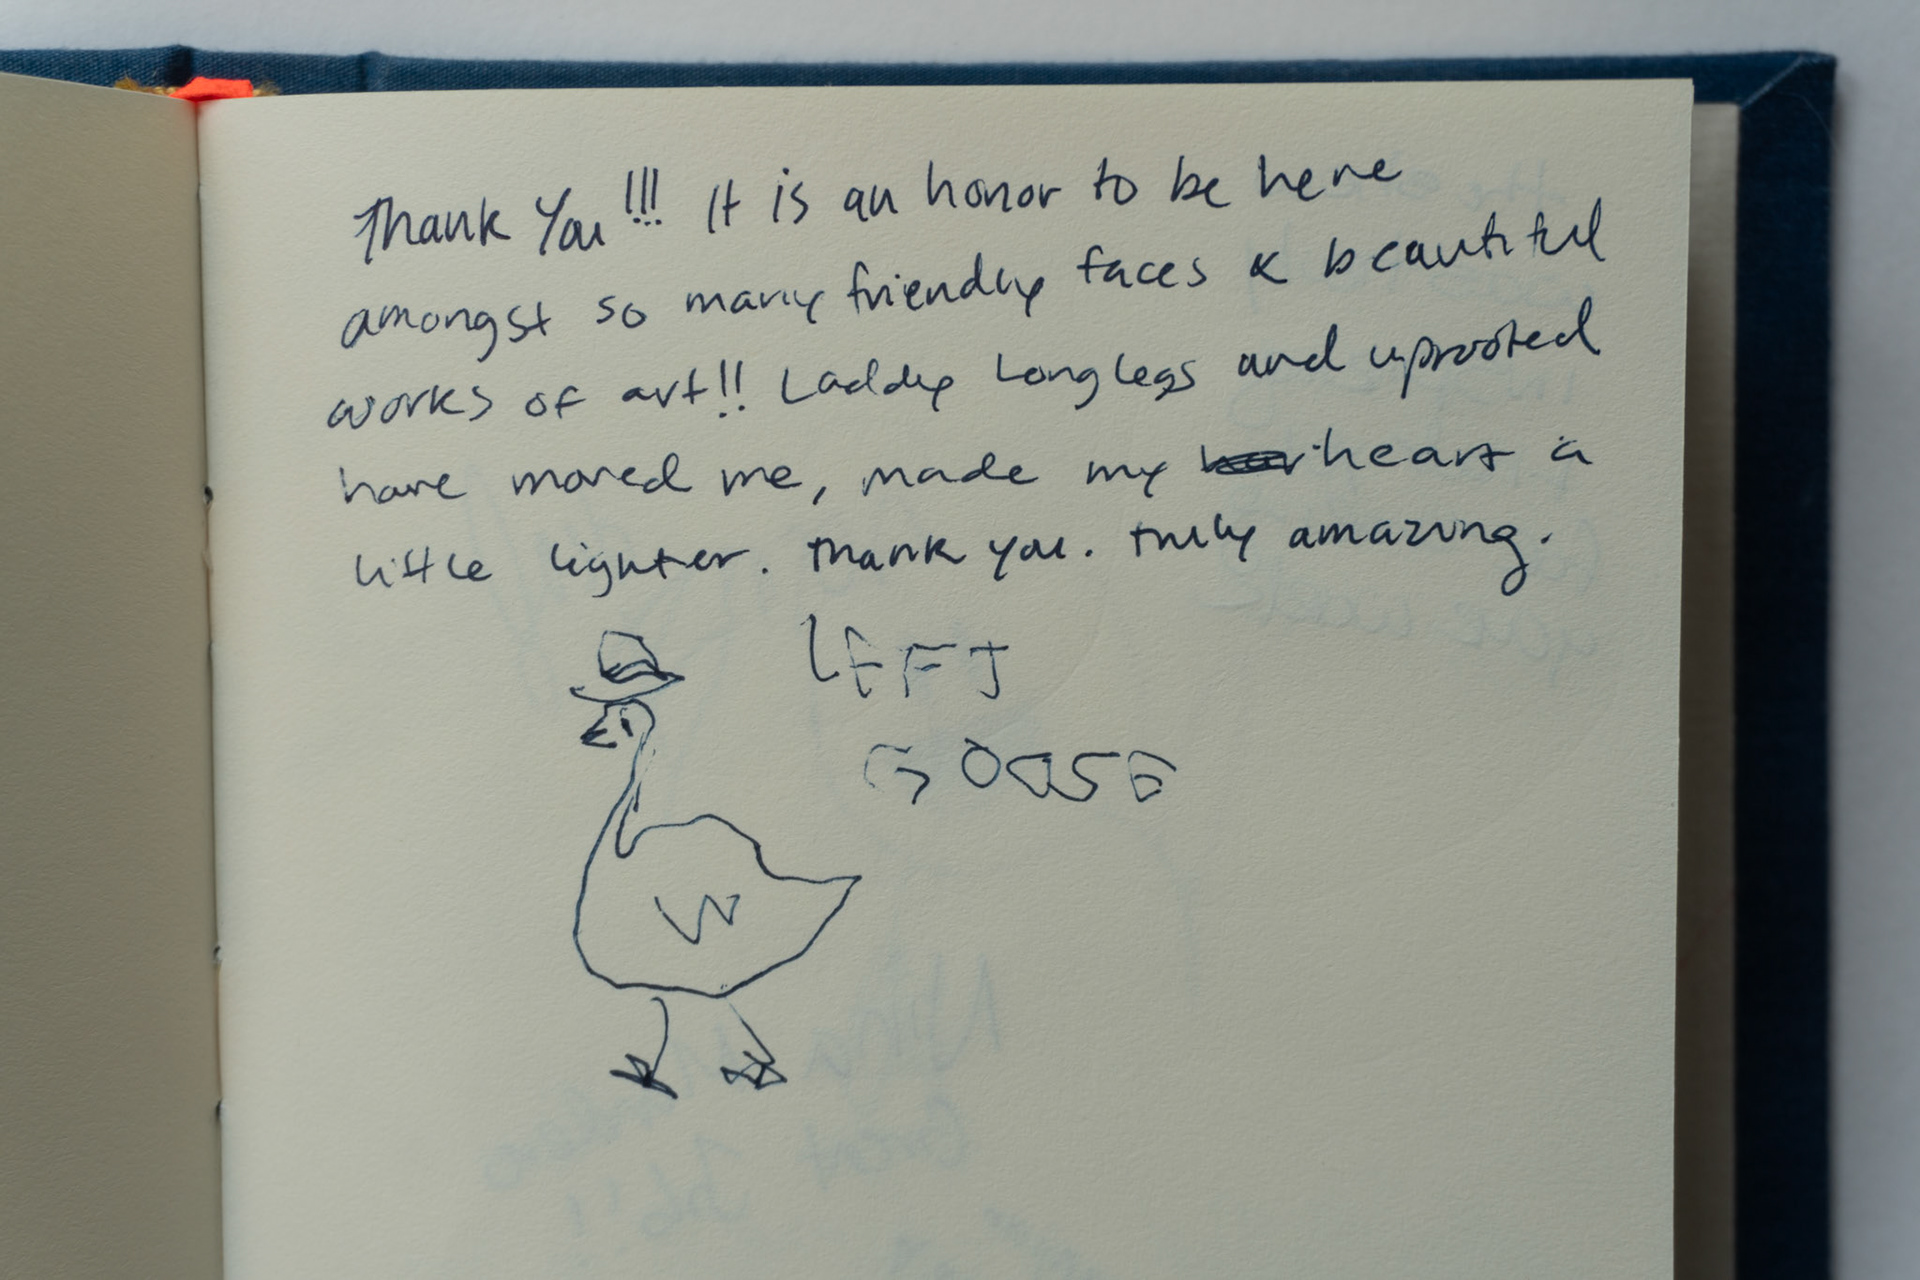 Thank You!!! It is an honor to be here
amongst so many friendly faces & beautiful
works of art!! Laddy Longlegs and uprooted
have moved me, made my heart a
little lighter. Thank you. Truly amazing.
LEFT
GOOSE
W